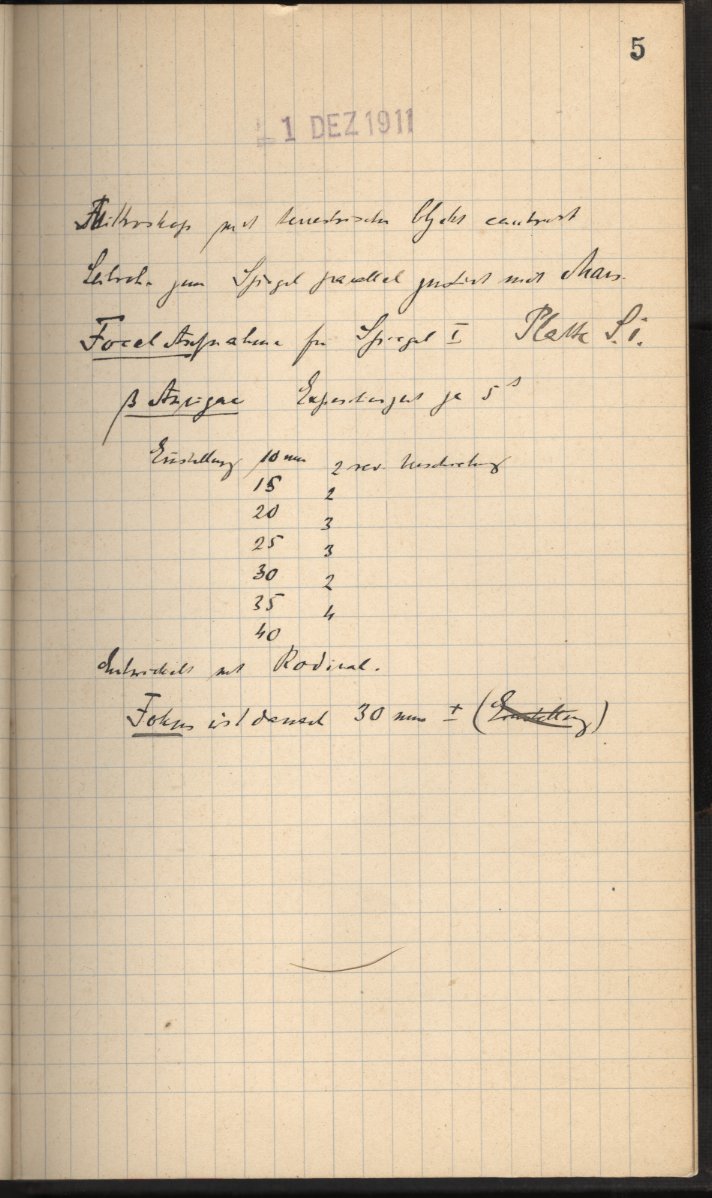 5
1 DEZ 1911
Mikroskop mit terrestrischem Objekt centriert
Leitrohr zum Spiegel parallel justirt mit Mars.
Focal Aufnahme für Spiegel I Platte S.1.
β Aurigae je 5 s
Einstellung 10 mm 2 rev.
15 2
20 3
25 3
30 2
35 4
40
Entwickelt mit Rodinal.
Fokus ist darnach 30 mm ± (Einstellung)